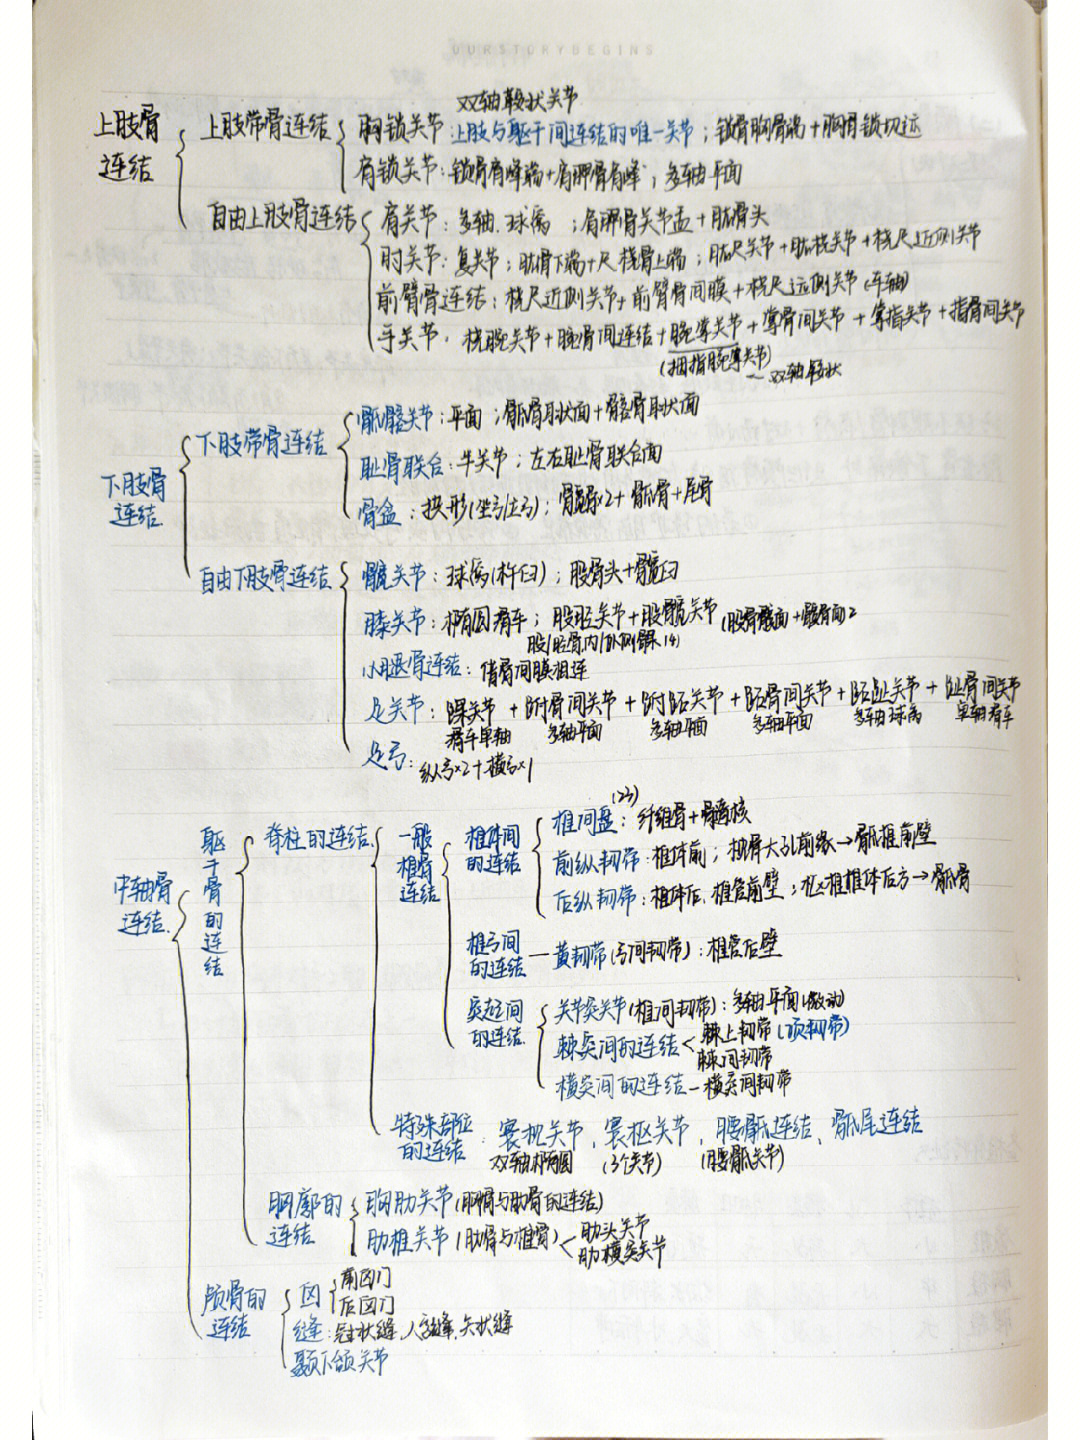 OURSTORYBEGINS
双轴鞍状关节
上肢骨连结
上肢带骨连结
胸锁关节:上肢与躯干间连结的唯一关节;锁骨胸骨端+胸骨锁切迹
肩锁关节:锁骨肩峰端+肩胛骨肩峰;多轴平面
自由上肢骨连结
肩关节:多轴.球窝 ;肩胛骨关节盂+肱骨头
肘关节:复关节;肱骨下端+尺桡骨上端;肱尺关节+肱桡关节+桡尺近侧关节
前臂骨连结:桡尺近侧关节+前臂骨间膜+桡尺远侧关节(车轴)
手关节.桡腕关节+腕骨间连结+腕掌关节+掌骨间关节+掌指关节+指骨间关节
(拇指腕掌关节)~双轴鞍状
下肢骨连结
下肢带骨连结
骶髂关节:平面;骶骨耳状面+髂骨耳状面
耻骨联合:半关节;左右耻骨联合面
骨盆:拱形(坐弓/立弓);髋骨×2+骶骨+尾骨
自由下肢骨连结
髋关节:球窝(杵臼);股骨头+髋臼
膝关节:椭圆滑车;股胫关节+股髌关节(股骨髌面+髌骨面)2
股/胫骨内/外侧髁(4)
小腿骨连结:借骨间膜相连
足关节:踝关节+跗骨间关节+跗跖关节+跖骨间关节+跖趾关节+趾骨间关节
滑车单轴 多轴平面 多轴平面 多轴平面 多轴球窝 单轴滑车
足弓:纵弓×2+横弓×1
中轴骨连结.
躯干骨的连结
脊柱的连结
一般椎骨连结
椎体间的连结
(23)
椎间盘:纤维骨+骨髓核
前纵韧带:椎体前;枕骨大孔前缘→骶椎前壁
后纵韧带:椎体后.椎管前壁;枢椎椎体后方→骶骨
椎弓间的连结—黄韧带(弓间韧带):椎管后壁
突起间的连结.
关节突关节(椎间韧带):多轴平面(微动)
棘突间的连结<棘上韧带(项韧带)
棘间韧带
横突间的连结—横突间韧带
特殊部位的连结:寰枕关节、寰枢关节、腰骶连结、骶尾连结
双轴椭圆 (3个关节) (腰骶关节)
胸廓的连结
胸肋关节(胸骨与肋骨的连结)
肋椎关节(肋骨与椎骨)<肋头关节
肋横突关节
颅骨的连结
囟
前囟门
后囟门
缝:冠状缝,人字缝,矢状缝
颞下颌关节